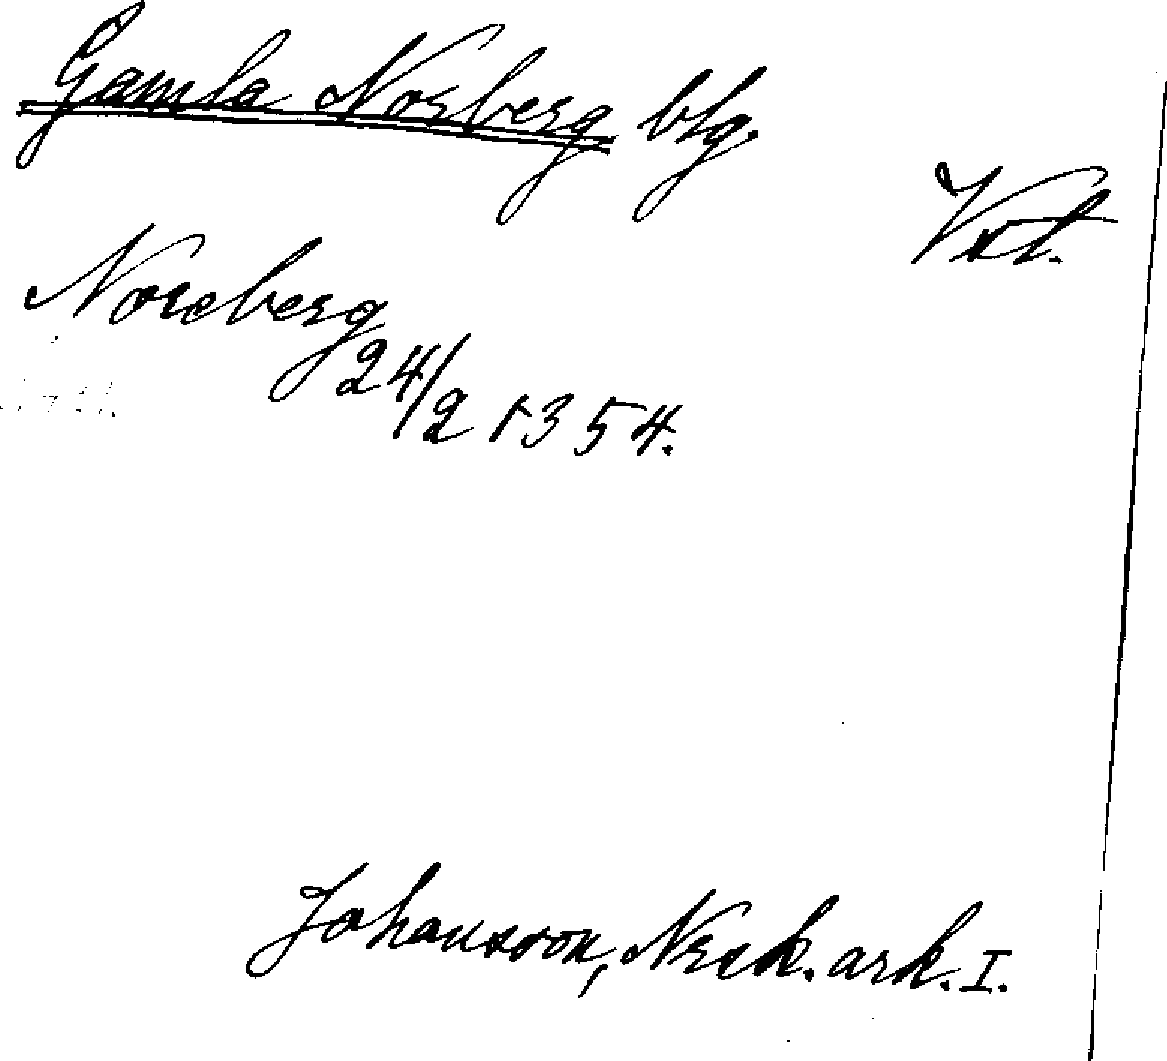 Gamla Norberg blg.
Noreberg
24/2 1354.
Johansson, Nrsk. ark. I.